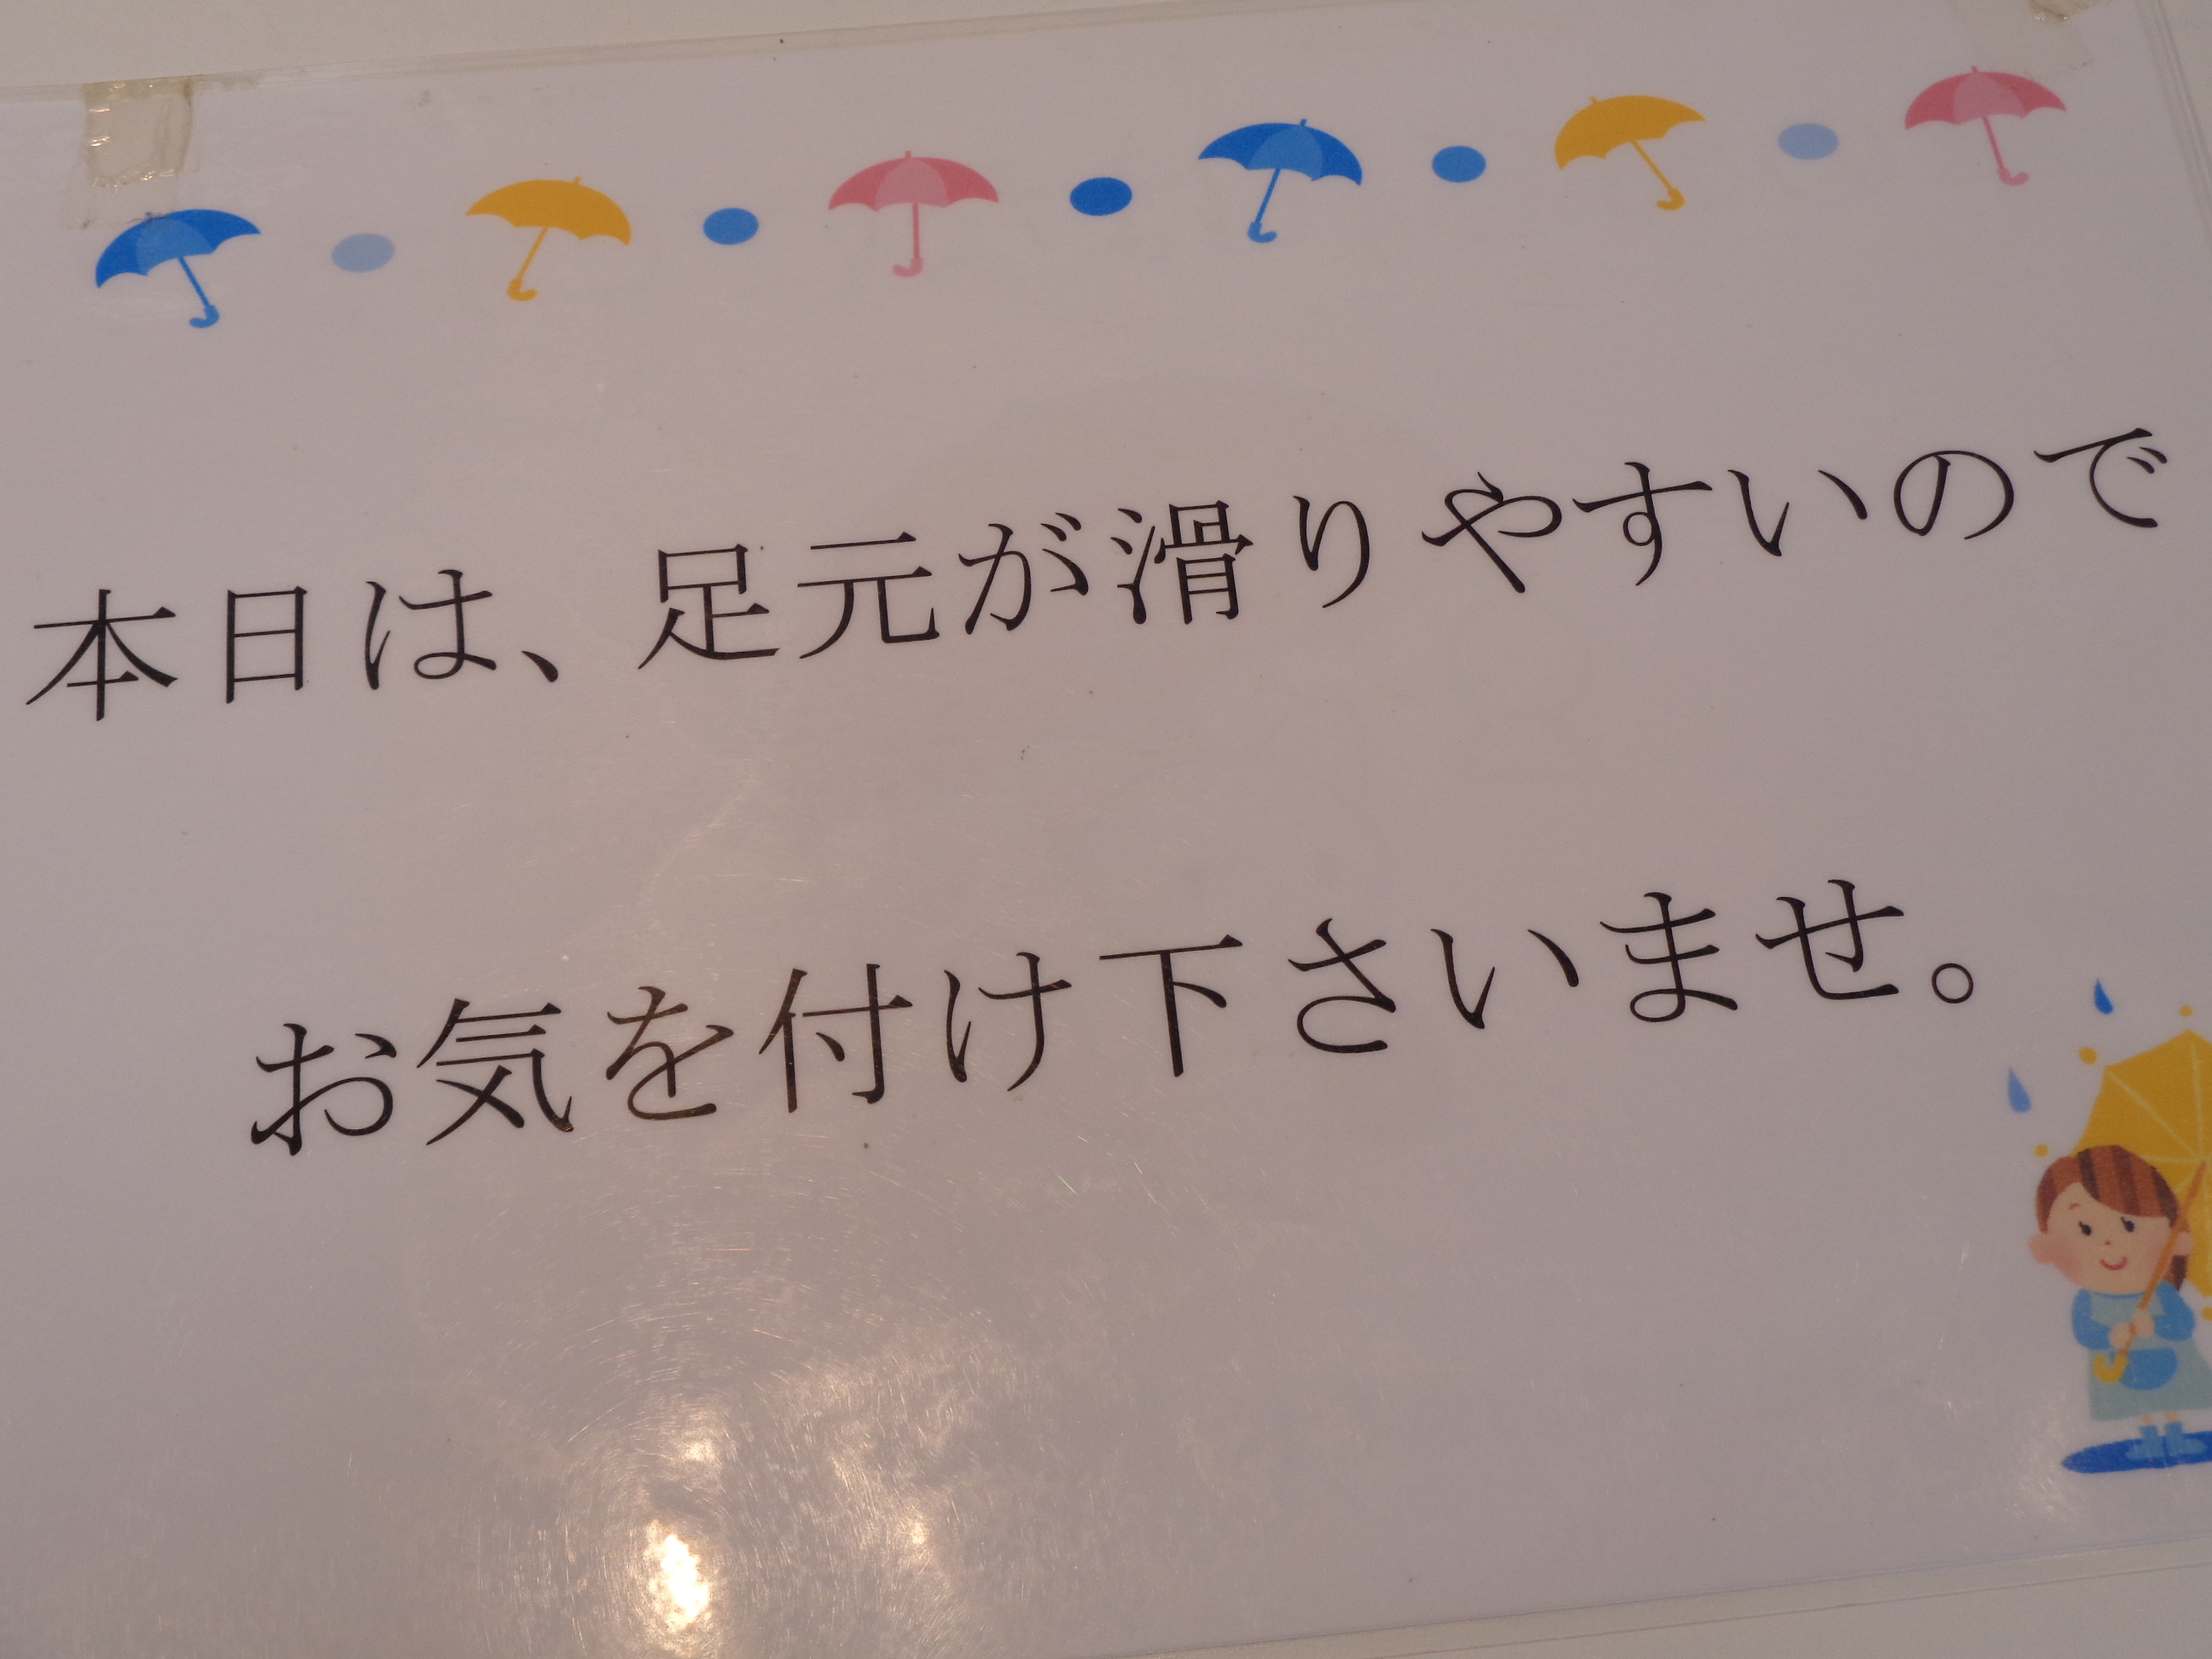 本日は、足元が滑りやすいので
お気を付け下さいませ。